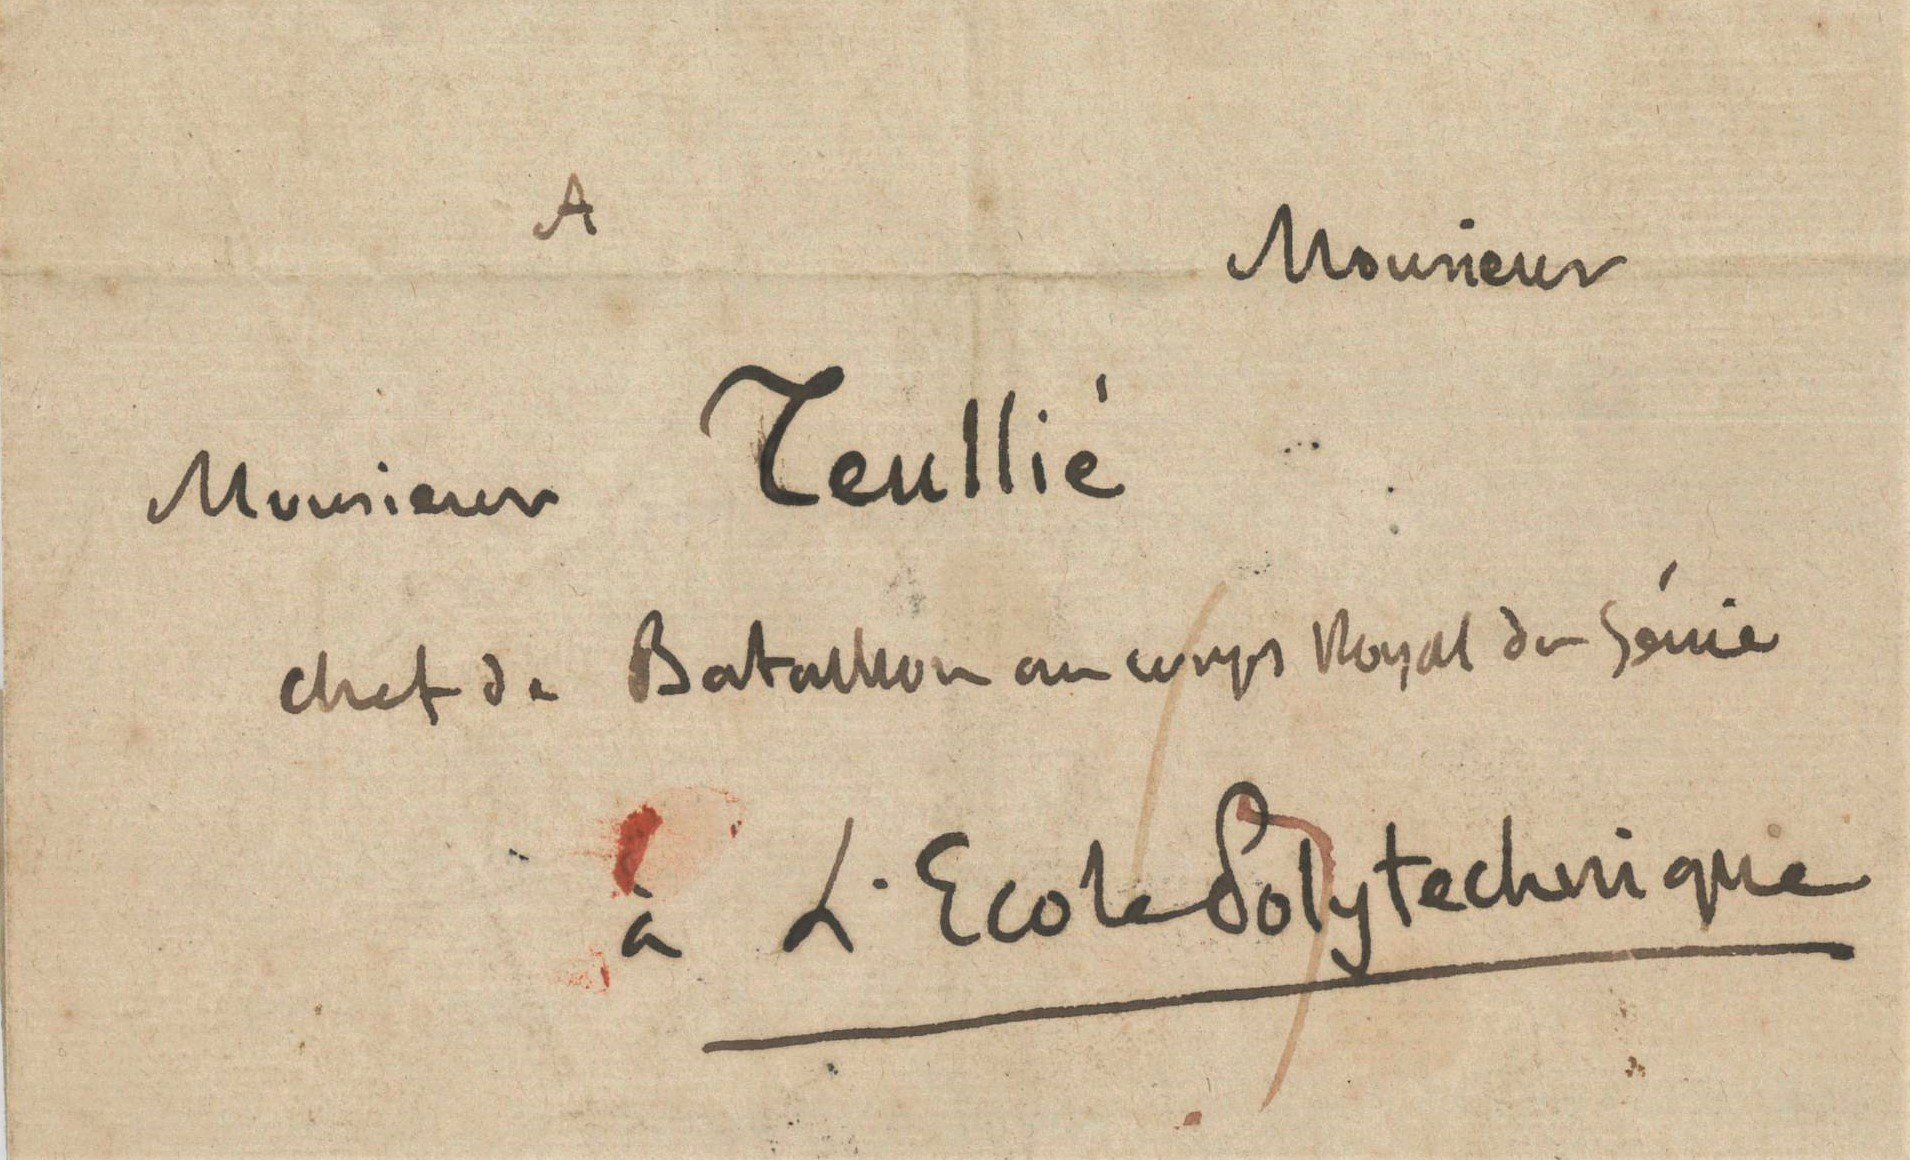 A Monsieur
Monsieur Teullié
chef de Bataillon au corps Royal du Génie
à L'Ecole Polytechnique